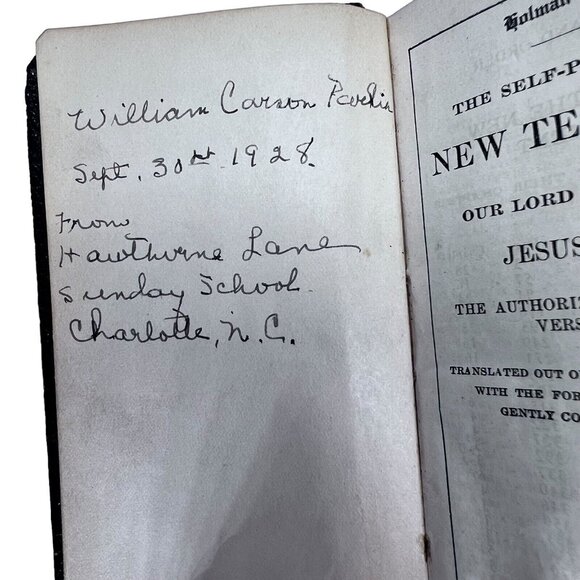 William Carson
Sept. 30th 1928.
From
Hawthorne Lane
Sunday School.
Charlotte, N.C.
Holman
THE SELF-P
NEW TE
OUR LORD
JESUS
THE AUTHORIZ
VERS
TRANSLATED OUT O
WITH THE FOR
GENTLY CO